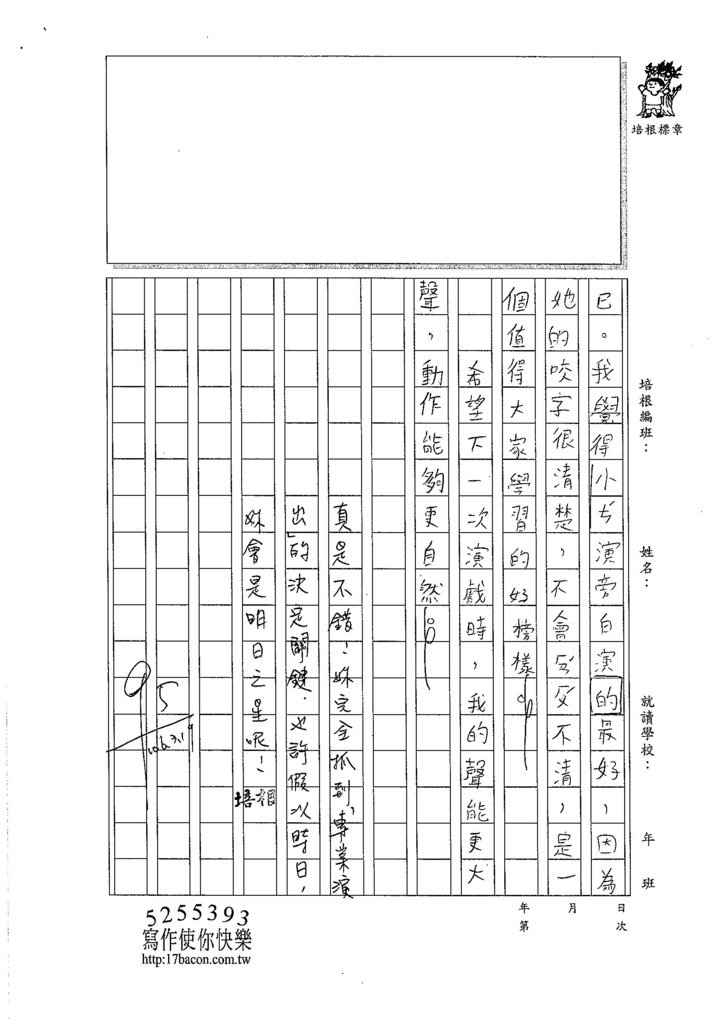 培根標章
培根編班：
姓名：
就讀學校：
年
班
年
月
日
第
次
已。我覺得小ㄘ演旁白演的最好，因為
她的咬字很清楚，不會ㄈㄣ不清，是一
個值得大家學習的好榜樣。
希望下一次演戲時，我的聲能更大
聲，動作能夠更自然。
真是不錯！妳完全抓到「專業演
出」的決定關鍵，也許假以時日，
妳會是明日之星呢！
培根
95
5255393
寫作使你快樂
http:17bacon.com.tw